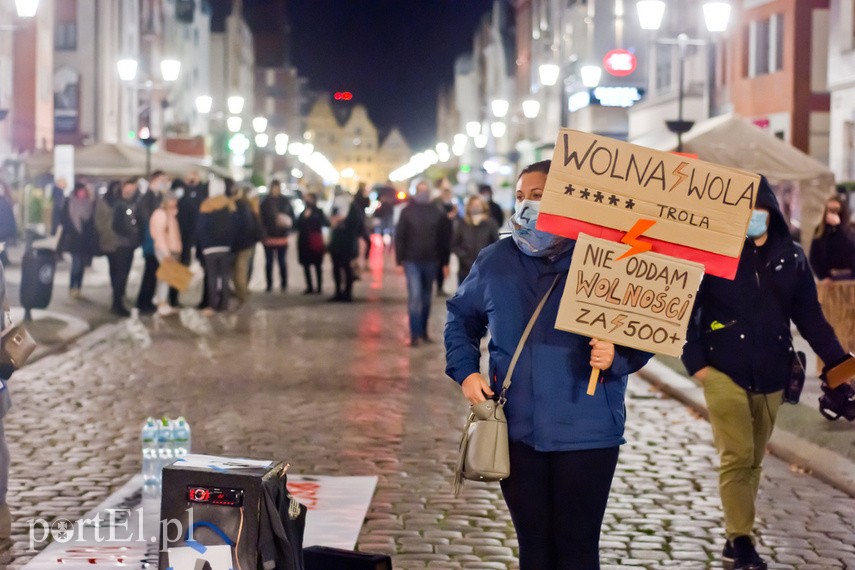 WOLNA WOLA
*****
TROLA
NIE ODDAM
WOLNOŚCI
ZA 500+
portEl.pl